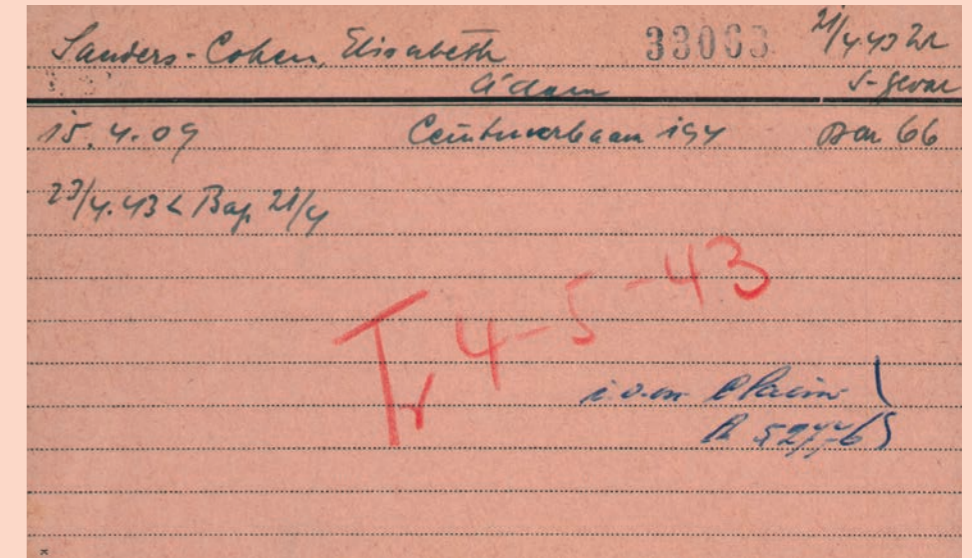 Sanders-Cohen, Elisabeth 33063 21/4.43
A'dam S-geval
15.4.09 Ceintuurbaan 194 Bar 66
23/4.43 L Bag. 21/4
Tr 4-5-43
i.v.m. Claim